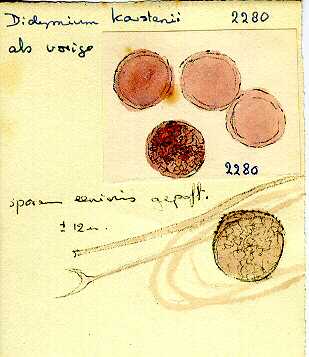 Didymium karstenii 2280
als vorige
2280
sporen gepoft.
± 12 u.